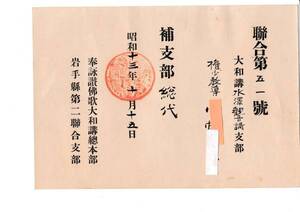 聯合第五一號
大和講水澤觀音講支部
權少教導
補支部總代
昭和十三年十月十五日
奉詠讃佛歌大和講總本部
岩手縣第二聯合支部